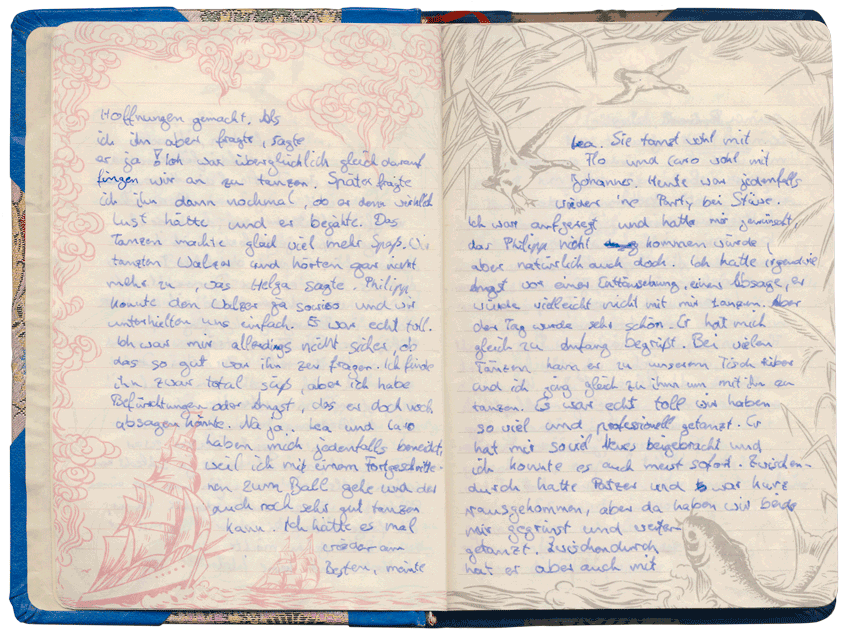 Hoffnungen gemacht. Als
ich ihn aber fragte, sagte
er ja! Ich war überglücklich gleich darauf
fingen wir an zu tanzen. Später fragte
ich ihn dann nochmal, ob er denn wirklich
Lust hätte und er bejahte. Das
Tanzen machte gleich viel mehr Spaß. Wir
tanzten Walzer und hörten gar nicht
mehr zu, was Helga sagte. Philipp
konnte den Walzer ja sowieso und wir
unterhielten uns einfach. Es war echt toll.
Ich war mir allerdings nicht sicher, ob
das so gut war ihn zu fragen. Ich finde
ihn zwar total süß, aber ich habe
Befürchtungen oder Angst, das er doch noch
absagen könnte. Na ja. Lea und Caro
haben mich jedenfalls beneidet,
weil ich mit einem Fortgeschritte-
nen zum Ball gehe und der
auch noch sehr gut tanzen
kann. Ich hätte es mal
wieder am
Besten, meinte
Lea. Sie tanzt wohl mit
Flo und Caro wohl mit
Johannes. Heute war jedenfalls
wieder 'ne Party bei Stüwe.
Ich war aufgeregt und hatte mir gewünscht
das Philipp nicht kommen würde,
aber natürlich auch doch. Ich hatte irgendwie
Angst vor einer Enttäuschung, einer Absage, er
würde vielleicht nicht mit mir tanzen. Aber
der Tag wurde sehr schön. Er hat mich
gleich zu Anfang begrüßt. Bei vielen
Tänzen kam er zu unserem Tisch rüber
und ich ging gleich zu ihm um mit ihm zu
tanzen. Es war echt toll wir haben
so viel und professionell getanzt. Er
hat mir soviel Neues beigebracht und
ich konnte es auch meist sofort. Zwischen-
durch hatte Patzer und war kurz
rausgekommen, aber da haben wir beide
nur gegrinst und weiter-
getanzt. Zwischendurch
hat er aber auch mit